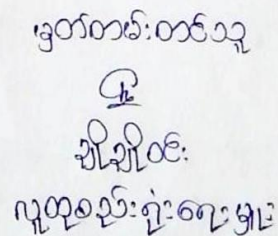 မှတ်တမ်းတင်သူ
ချိုချိုဝင်း
လူထုစည်းရုံးရေးမှူး